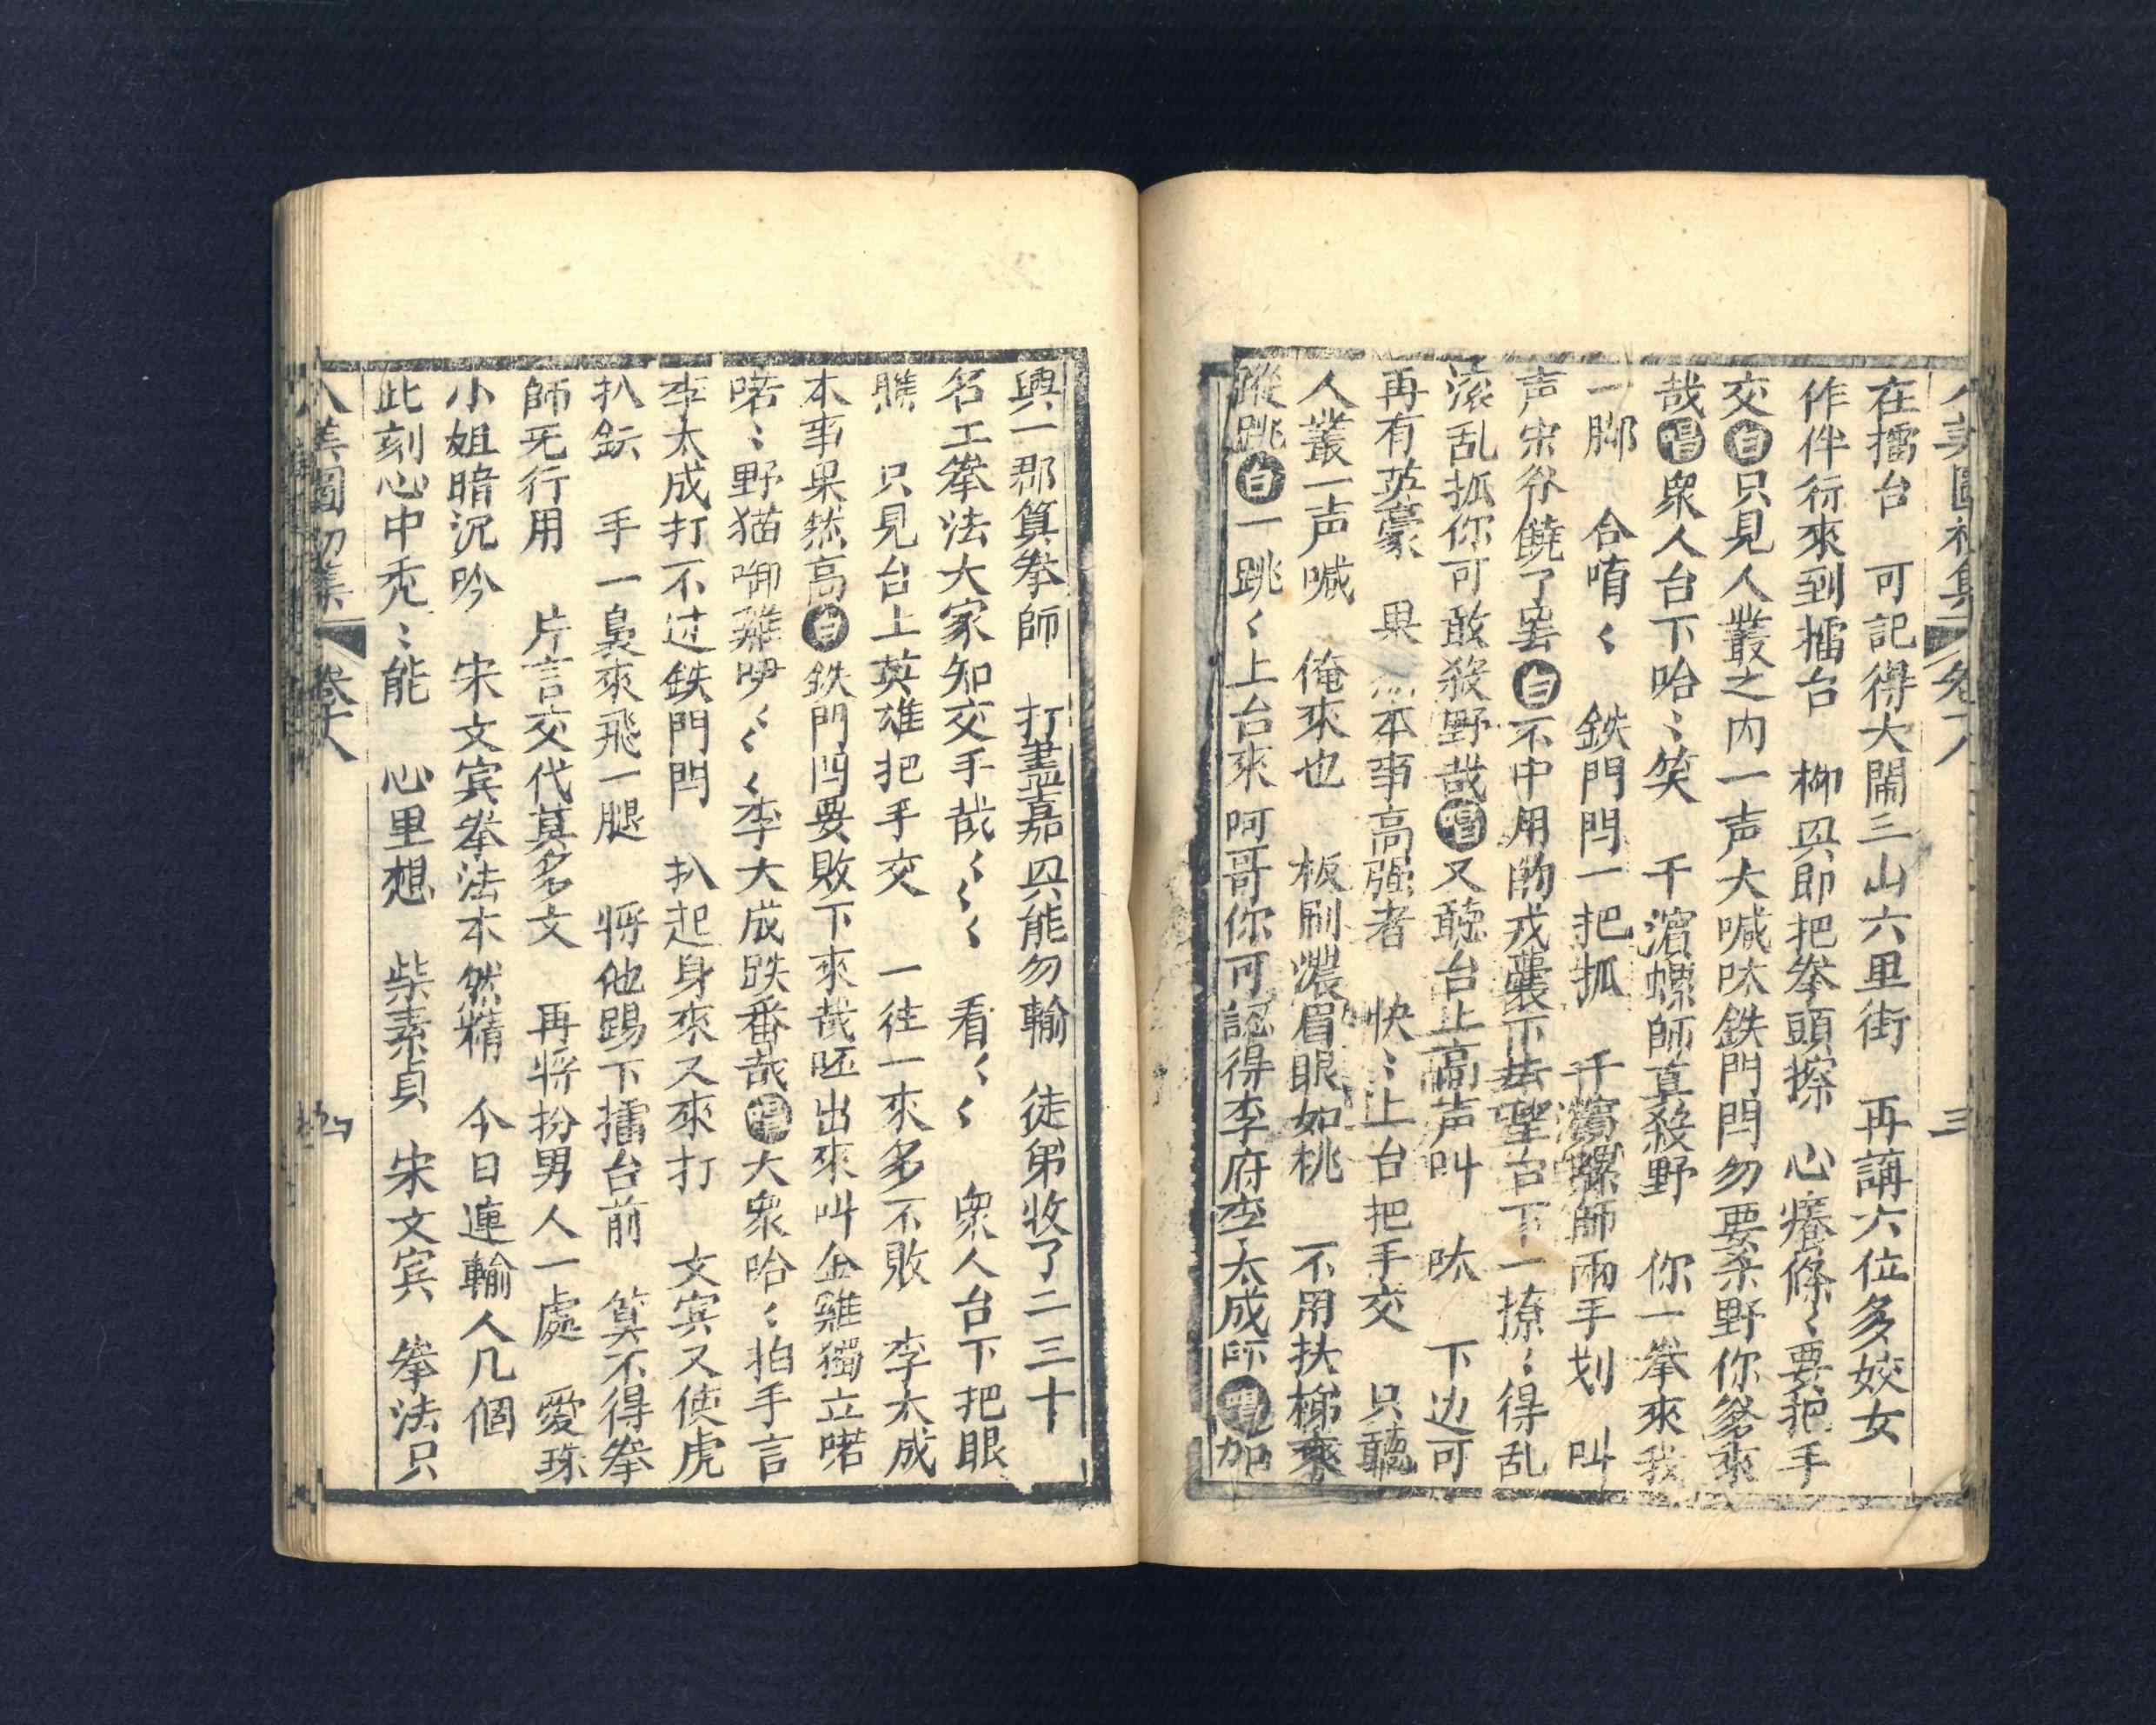 八美圖初集 卷十八 三
在擂台 可記得大鬧三山六里街 再講六位多姣女
作伴行來到擂台 柳㒷即把拳頭擦 心癢傺〻要把手
交白只見人叢之内一声大喊呔鉄門閂勿要杀野你爹來
哉唱衆人台下哈〻笑 千濵螺師真殺野 你一拳來我
一脚 合唷〻 鉄門閂一把抓 千濵螺師兩手划 叫
声宋爷饒了罢白不中用的戎囊下去望台下一撩〻得乱
滚乱抓你可敢殺野哉唱又聽台上高声叫 呔 下边可
再有英豪 果然本事高强者 快〻上台把手交 只聽
人叢一声喊 俺來也 板刷濃眉眼如桃 不用扶梯來
蹤跳白一跳〻上台來阿哥你可認得李府李太成师唱加
興一郡算拳師 打盡嘉㒷能勿輸 徒弟收了二三十
名工拳法大家知交手哉〻〻〻 看〻〻 衆人台下把眼
瞧 只見台上英雄把手交 一往一來多不敗 李太成
本事果然高白鉄門閂要敗下來哉呸出來叫金雞獨立喏
喏〻野猫啣雞咿〻〻〻李大成跌番哉唱大衆哈〻拍手言
李太成打不过鉄門閂 扒起身來又來打 文宾又使虎
扒䤜 手一裊來飛一腿 將他踢下擂台前 算不得拳
師无行用 片言交代莫多文 再將扮男人一處 愛珠
小姐暗沉吟 宋文宾拳法本然精 今日連輸人几個
此刻心中禿〻能 心里想 柴素貞 宋文宾 拳法只
八美圖初集 卷十八